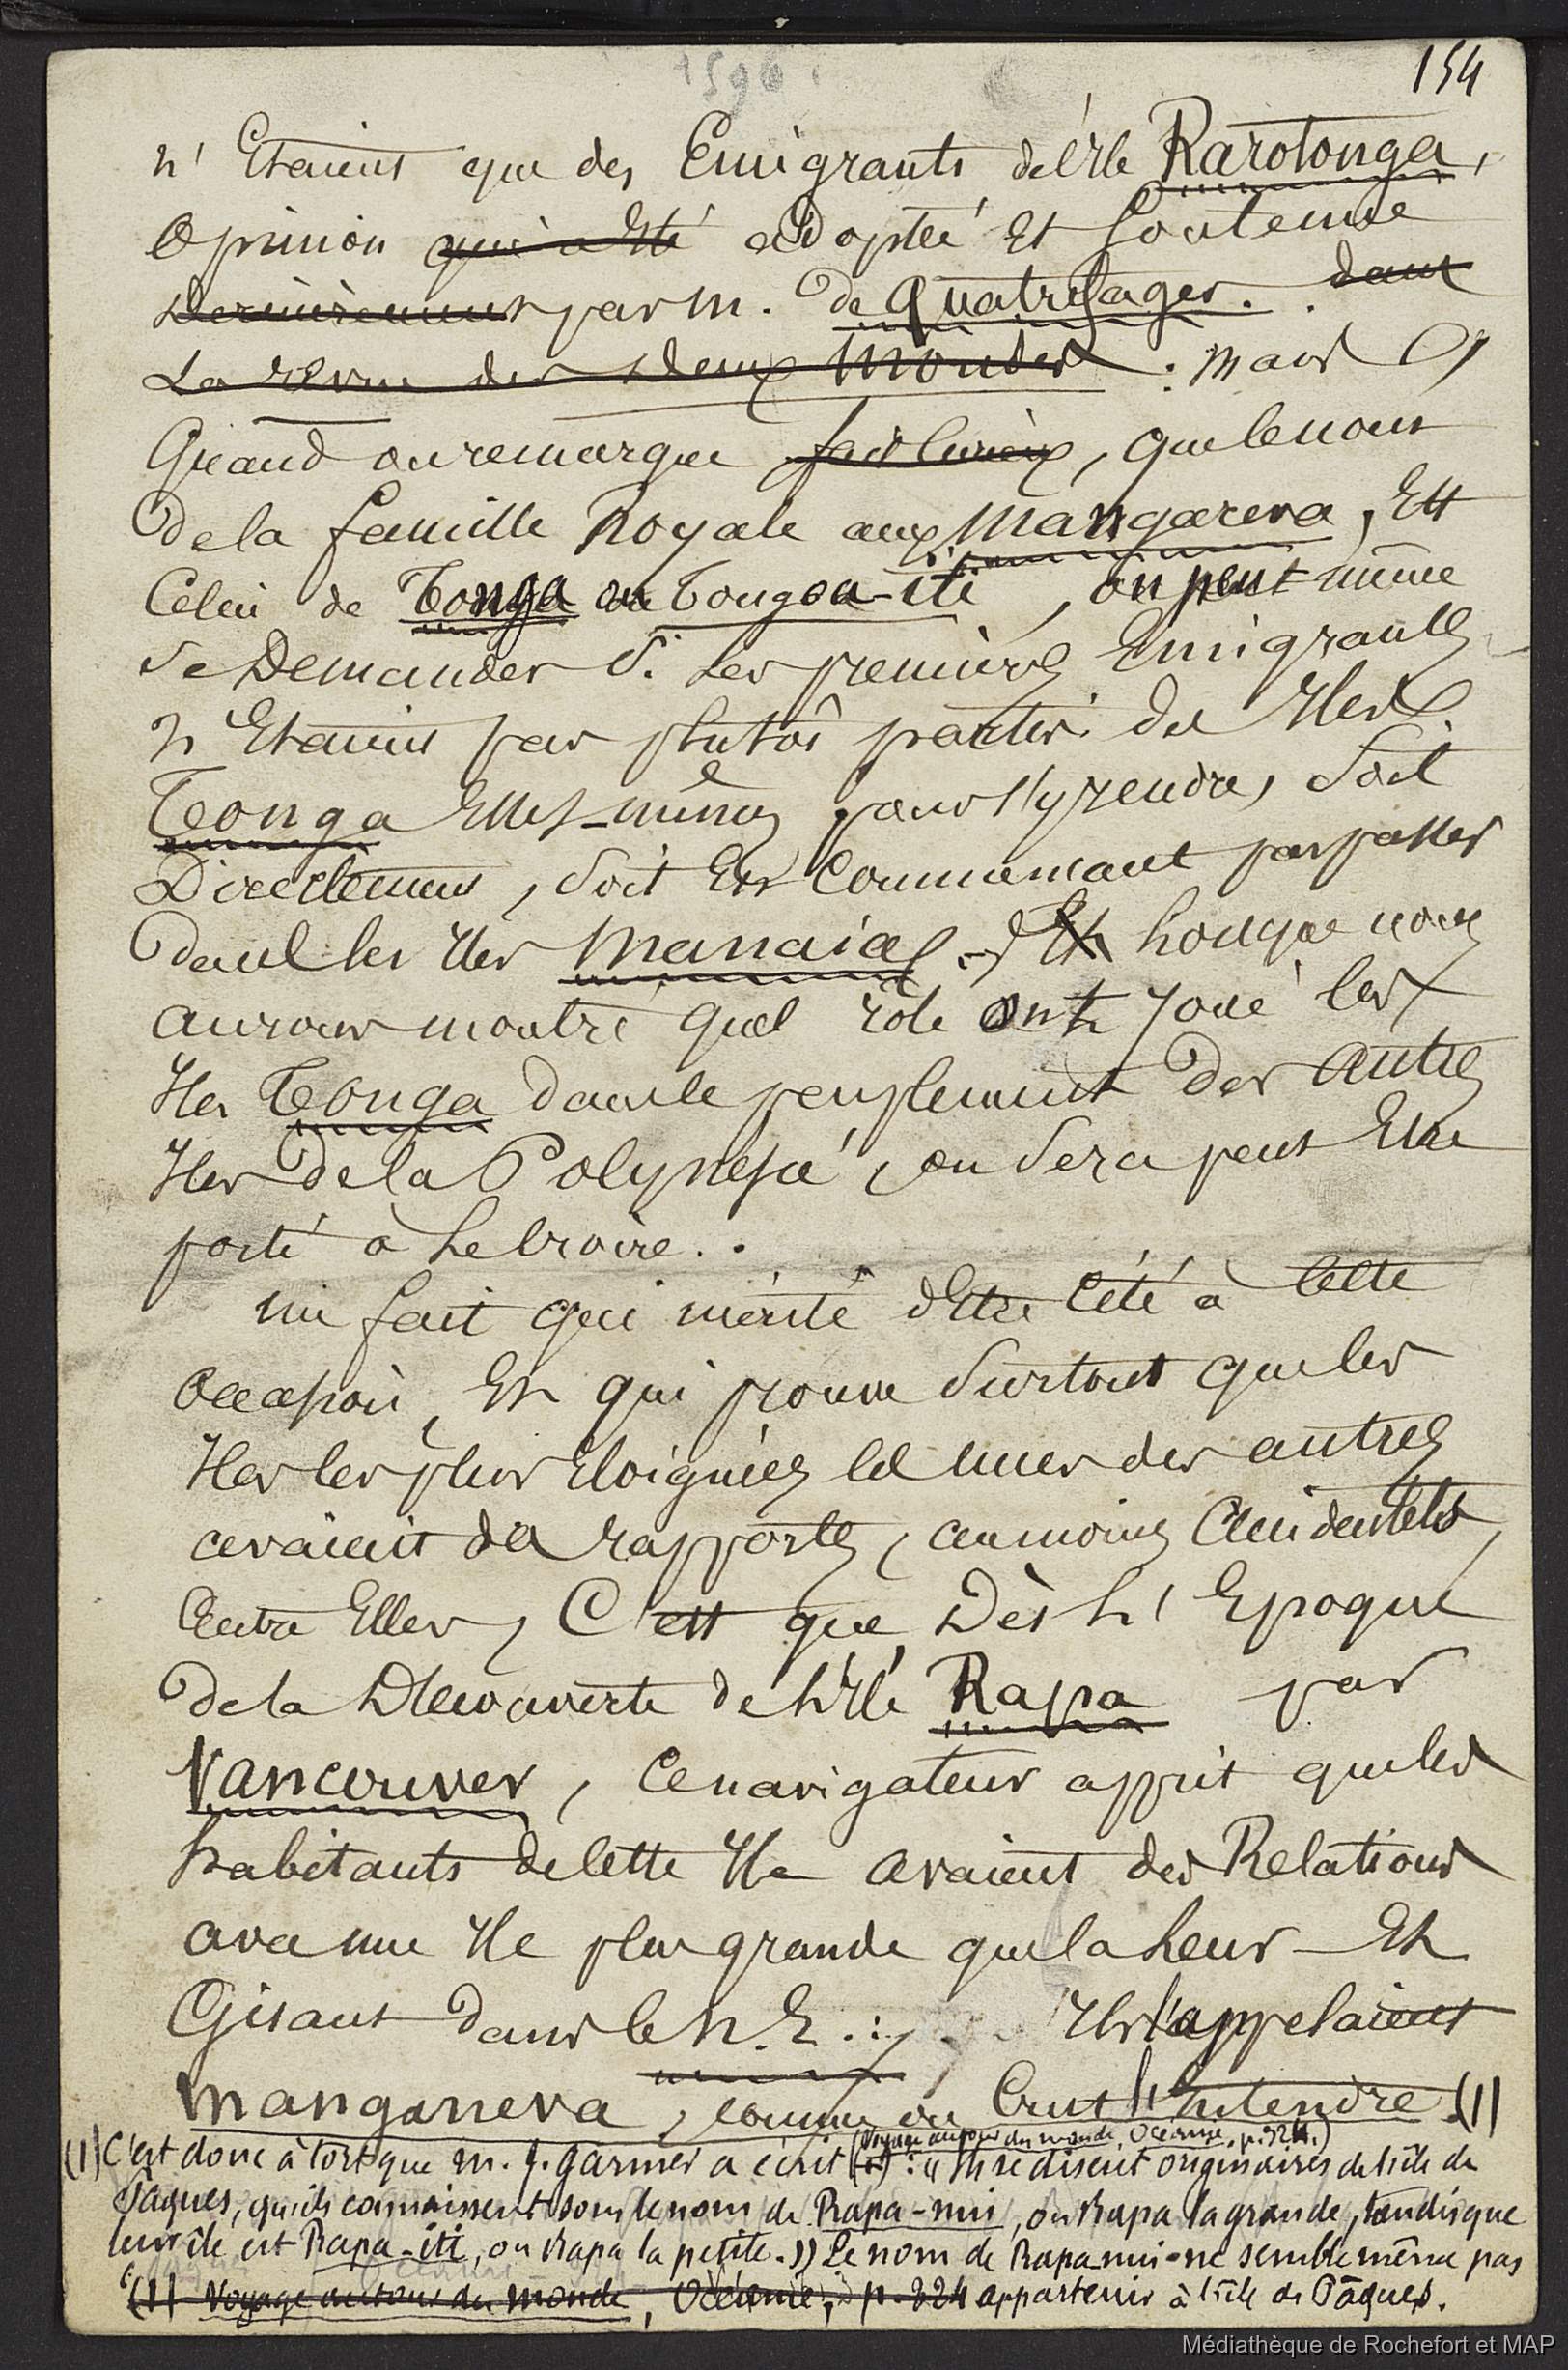 154
n'Etaient que des Emigrants de l'Ile Rarotonga,
Opinion qui a été adoptée Et Soutenue
Dernièrement par M. de Quatrefages. dans
La revue des deux Mondes : mais
Quand on remarque fait curieux, que le nom
De la famille Royale aux Mangareva, Est
Celui de Tonga ou Tongoa-iti, on peut même
Se Demander Si les premiers Emigrants
n'Etaient pas plutôt partis des Iles
Tonga Elles-mêmes pour s'y rendre, Soit
Directement, Soit En Commencant par passer
Dans les Iles Manaia. Et lorsque nous
aurons montré quel rôle ont Joué les
Iles Tonga dans le peuplement des autres
Iles De la Polynesie, on Sera peut Etre
porté à Le Croire..
un fait qui mérite d'Etre Cité à Cette
Occasion, Et qui prouve Surtout que les
Iles les plus Eloignées les unes des autres
avaient des rapports, au moins accidentels,
Entre Elles, C'est que Dès L'Epoque
De la Découverte de L'Ile Rapa par
Vancouver, Ce navigateur apprit que les
habitants de Cette Ile avaient des Relations
avec une Ile plus grande que la Leur Et
Gisant Dans le N.E. : Ils l'appelaient
Manganeva, comme on Crut l'Entendre (1)
(Voyage autour du monde, Océanie, p. 324.)
(1) C'est donc à tort que M. J. Garnier a écrit (1) : « Ils se disent originaires de l'île de
Pâques, qu'ils connaissent sous le nom de Rapa-nui, ou Rapa la grande, tandis que
leur île est Rapa-iti, ou Rapa la petite. » Le nom de Rapa nui ne semble même pas
(1) Voyage autour du monde, Océanie, p. 324 appartenir à l'île de Pâques.
Médiathèque de Rochefort et MAP